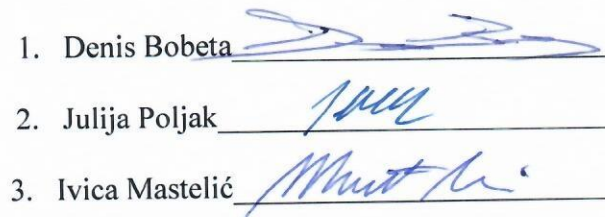 1. Denis Bobeta
2. Julija Poljak
3. Ivica Mastelić